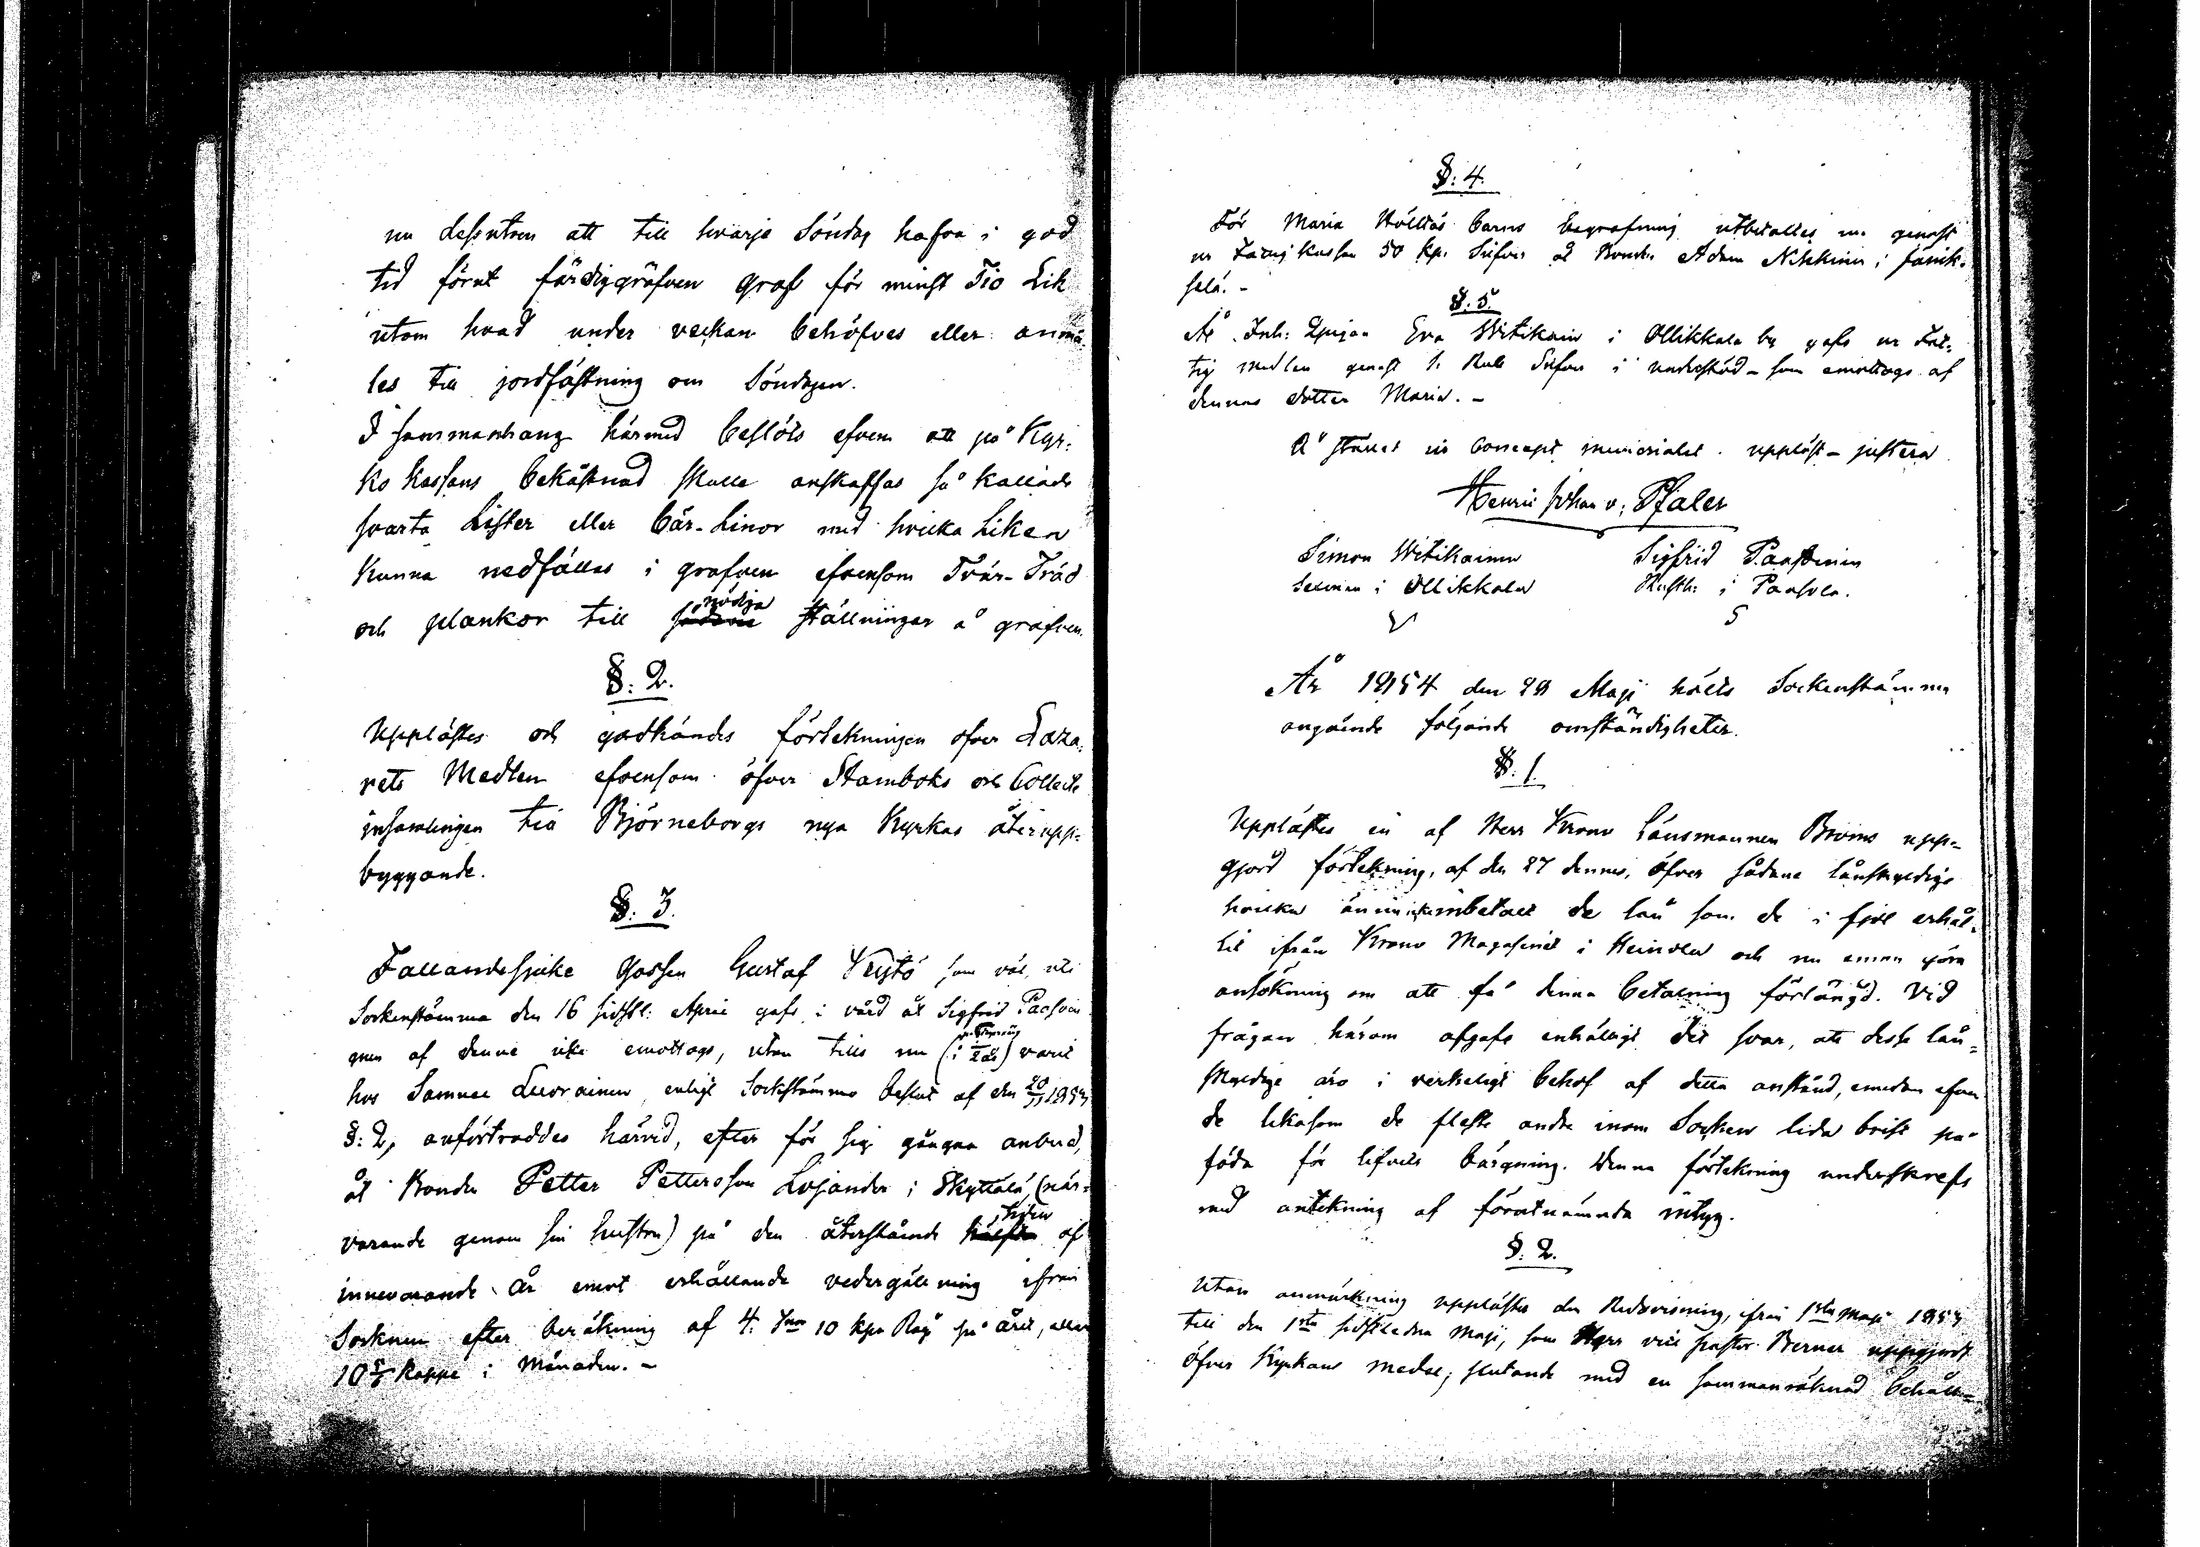 nu dessutom att till hvarje Söndag hafva i god
tid förut färdiggräfven graf för minst Tio Lik
utom hvad under veckan behöfves eller anmä
les till jordfästning om Söndagen.
I sammanhang härmed beslöts efven att på Kyr-
ko Kassans bekåstnad skulle anskaffas så kallade
svarta Lister eller Bår-Linor med hvilka Liken
kunna nedfällas i grafven efvensom Tvär-Träd
och plankor till nödiga ställningar å grafven.
§. 2.
Upplästes och godkändes förtekningen öfver Laza-
rets Medlen efvensom öfver Stamboks och Collect
insamlingen till Björneborgs nya Kyrkas återupp-
byggande.
§. 3.
Fallandesjuke Gossen Gustaf Yrjö, som väl uti
Sockenstämma den 16 sidstl: April gafs i vård åt Sigfrid Paasoin
men af denne icke emottogs, utan tills nu (i ) varit
hos Samuel Luorainen, enligt Sockestämmo beslut af den 1853
§: 2, anförtroddes härvid, efter för sig gångna anbud,
åt Bonden Petter Pettersson Lojander i Skyttälä, (när-
varande genom sin hustru) på den återstående tiden af
innevarande år emot erhållande vedergällning ifrån
Socknen efter beräkning af 4. Tnr 10 kpr Råg på året, eller
10 kappe i Månaden. -
§: 4.
För Maria Hölttäs barns begrafning utbetaltes nu genast
ur Fattig Kassan 50 kp. Silfver åt Bonden Adam Nikkinen i Jänik-
sälä. -
§. 5.
Åt Inh: Eva Witikain i Ollikkala by gafs ur Fat-
tig medlen genast 1. Rub Silfver i understöd - som emottogs af
dennas dotter Maria. -
På stället ur Concept memorialet uppläst - justera
Henric Johan v. Pfaler
Simon Witikainen Sigfrid Paasoinen
Sexman i Ollikkala Husb: i Paasola.
År 1854 den 28 Maji hölts Sockenstämma
angående följande omständigheter.
§. 1.
Upplästes en af Herr Krono Länsmannen Brvins upp-
gjord förtekning, af den 27 dennes, öfver sådane lånskyldige
hvilka ännu icke inbetalt de lån som de i fjol erhål-
lit ifrån Krono Magasinet i Heinola och nu ernar göra
ansökning om att få denna betalning förlängd. Vid
frågan härom afgafs enhälligt det svar, att desse lån-
skyldige äro i verkeligt behof af detta anstånd, emedan efven
de likasom de fleste andre inom Socken lida brist på
föda för lifvets bärgning. Denna förtekning underskrefs
med antekning af förutnämnda intyg.
§. 2.
Utan anmärkning upplästes den Redovisning, ifrån 1sta Maji 1853
till den 1sta sidstledne Maji, som Herr vice pastor Berner uppgjordt
öfver Kyrkans medel, slutande med en sammanräknad behåll-